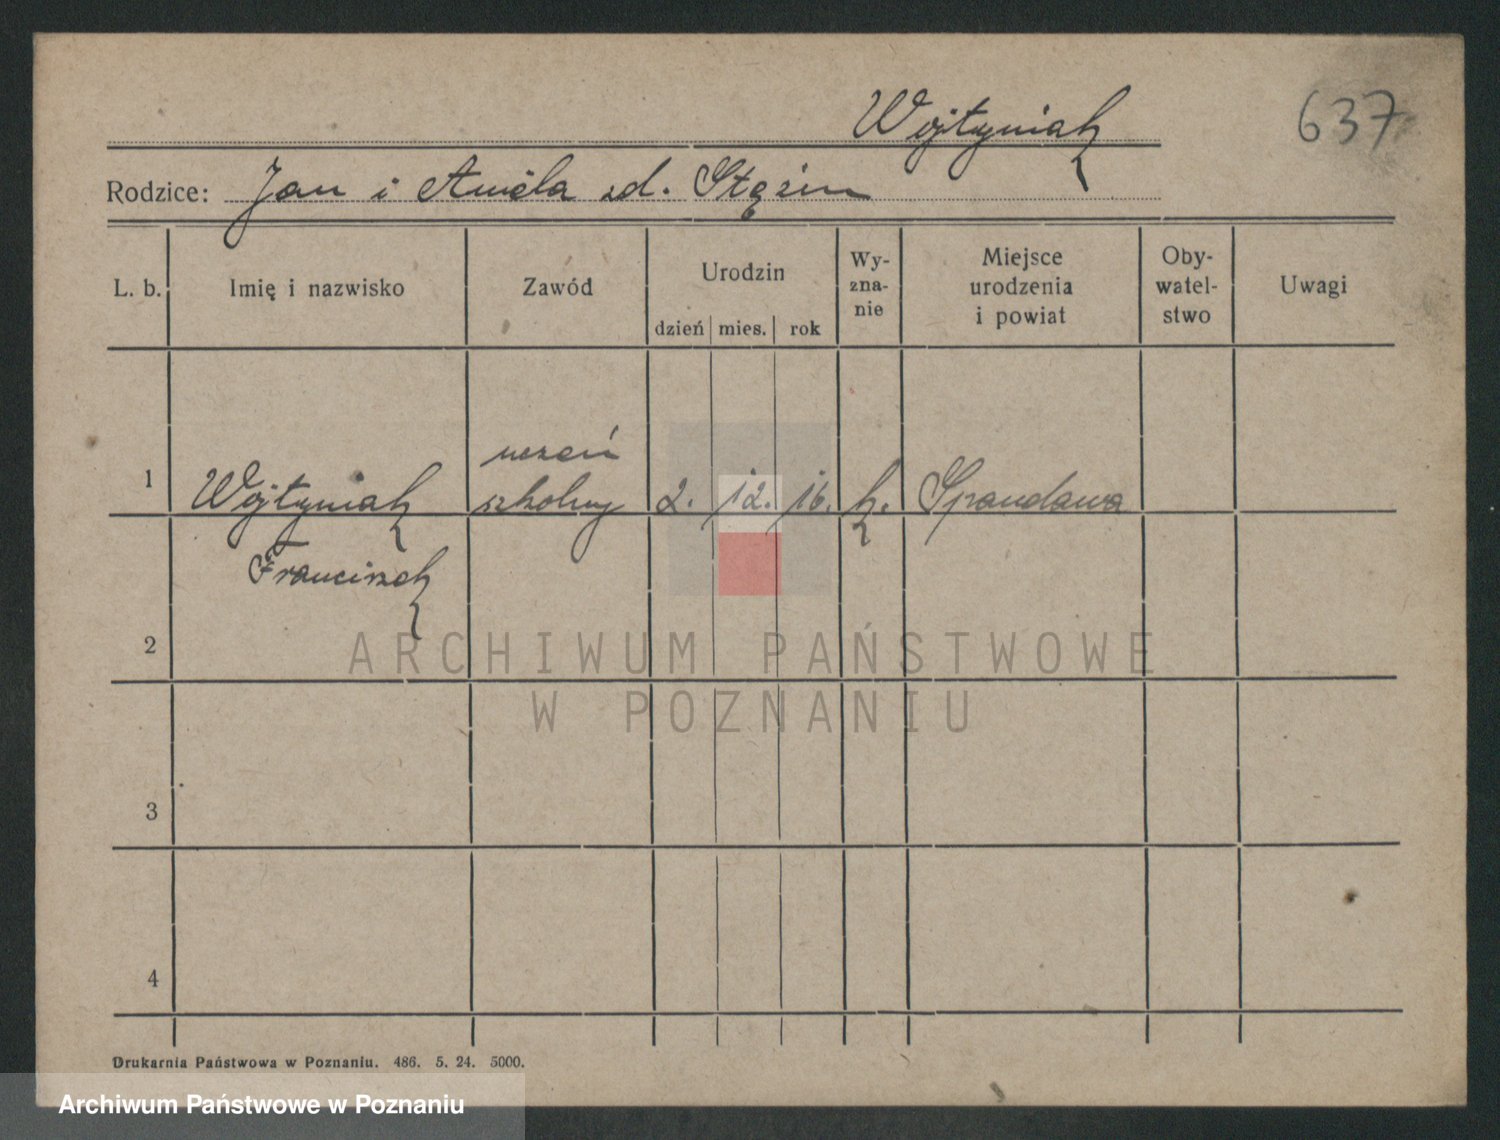 637
Wojtyniak
Rodzice: Jan i Aniela zd. Stęzin
L. b.
Imię i nazwisko
Zawód
Urodzin
dzień
mies.
rok
Wy-
zna-
nie
Miejsce
urodzenia
i powiat
Oby-
watel-
stwo
Uwagi
1
Wojtyniak
Franciszek
uczeń
szkolny
2. 12. 16.
k.
2
3
4
ARCHIWUM PAŃSTWOWE
W POZNANIU
Drukarnia Państwowa w Poznaniu. 486. 5. 24. 5000.
Archiwum Państwowe w Poznaniu